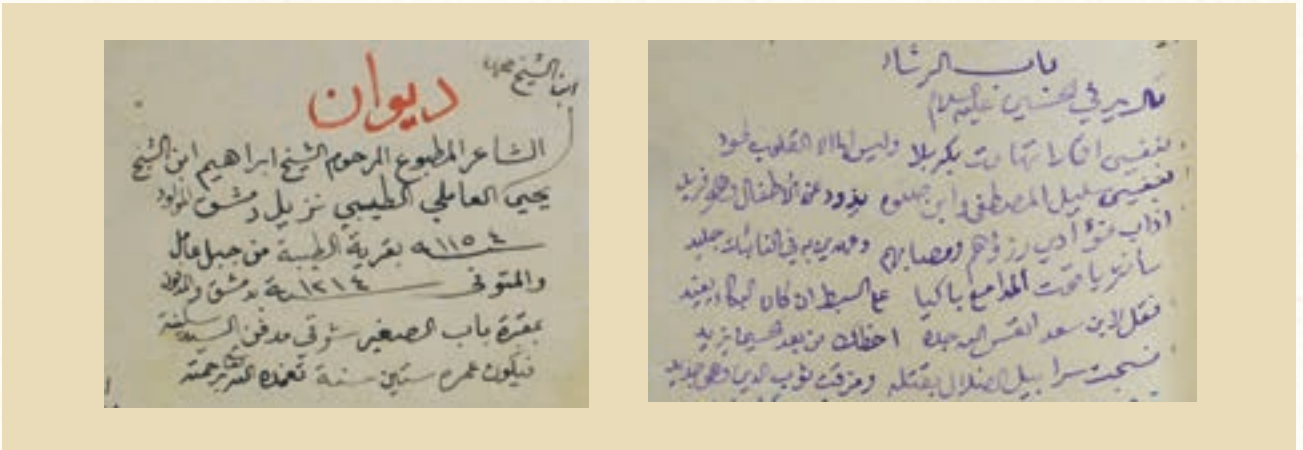 باب الرثاء
قال يرثي الحسين عليه السلام
بنفسي اقمارا تهاوت بكربلا وليس لها الا القلوب لحود
بنفسي سليل المصطفى وابن صنوه يذود عن الاطفال وهو فريد
اذاب فؤادي رزؤهم ومصابهم وعهدي به في النائبات جليد
سأنزف يا تحت المدامع باكيا على السبط ان كان البكاء يفيد
فقل لابن سعد اتعس الله جده احظك من بعد الحسين يزيد
نسجت سرابيل الضلال بقتله ومزقت ثوب الدين وهو جديد
ابن الشيخ محمد
ديوان
الشاعر المطبوع المرحوم الشيخ ابراهيم ابن الشيخ
يحيى العاملي الطيبي نزيل دمشق المولود
١١٥٤ بقرية الطيبة من جبل عامل
والمتوفى ١٢١٤ بدمشق والمدفون
بمقبرة باب الصغير شرقي مدفن السيدة سكينة
فيكون عمره ستين سنة تغمده الله برحمته